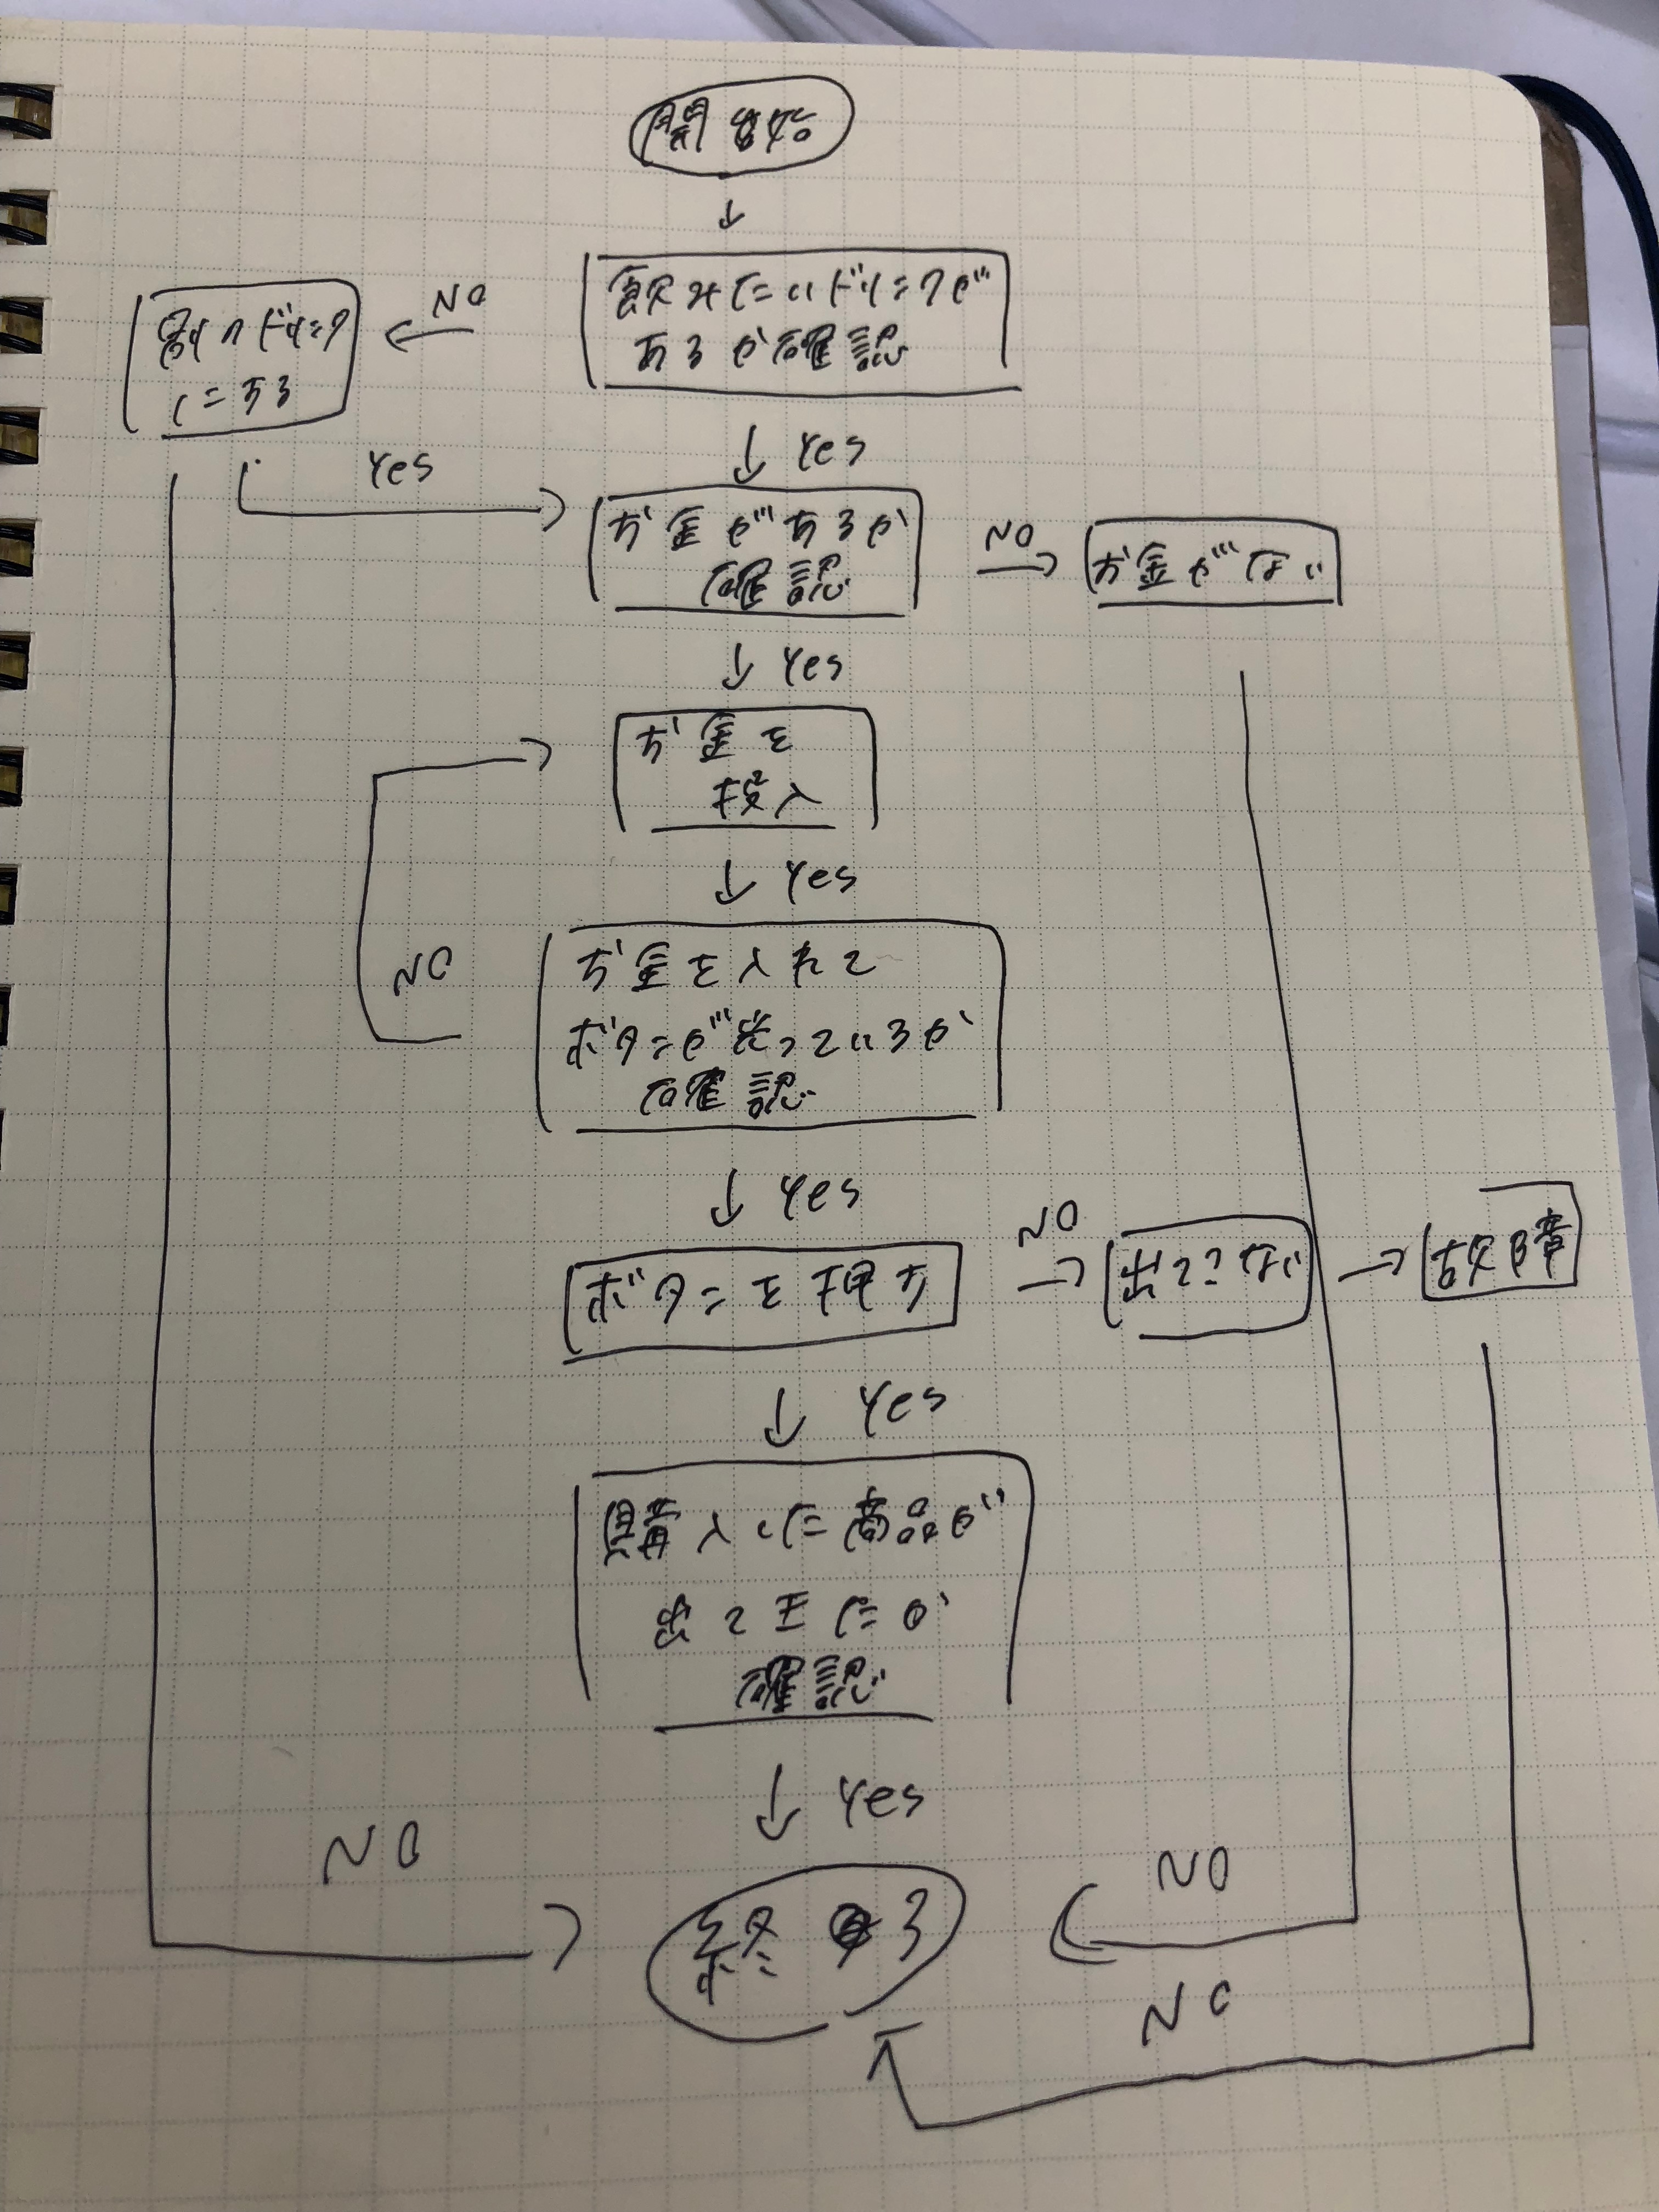 開始
飲みたいドリンクが
あるか確認
NO
別のドリンク
にする
Yes
Yes
お金があるか
確認
NO
お金がない
Yes
お金を
投入
Yes
NO
お金を入れて
ボタンが光っているか
確認
Yes
ボタンを押す
NO
出てこない
故障
Yes
購入した商品が
出てきたか
確認
Yes
NO
NO
終了
NO